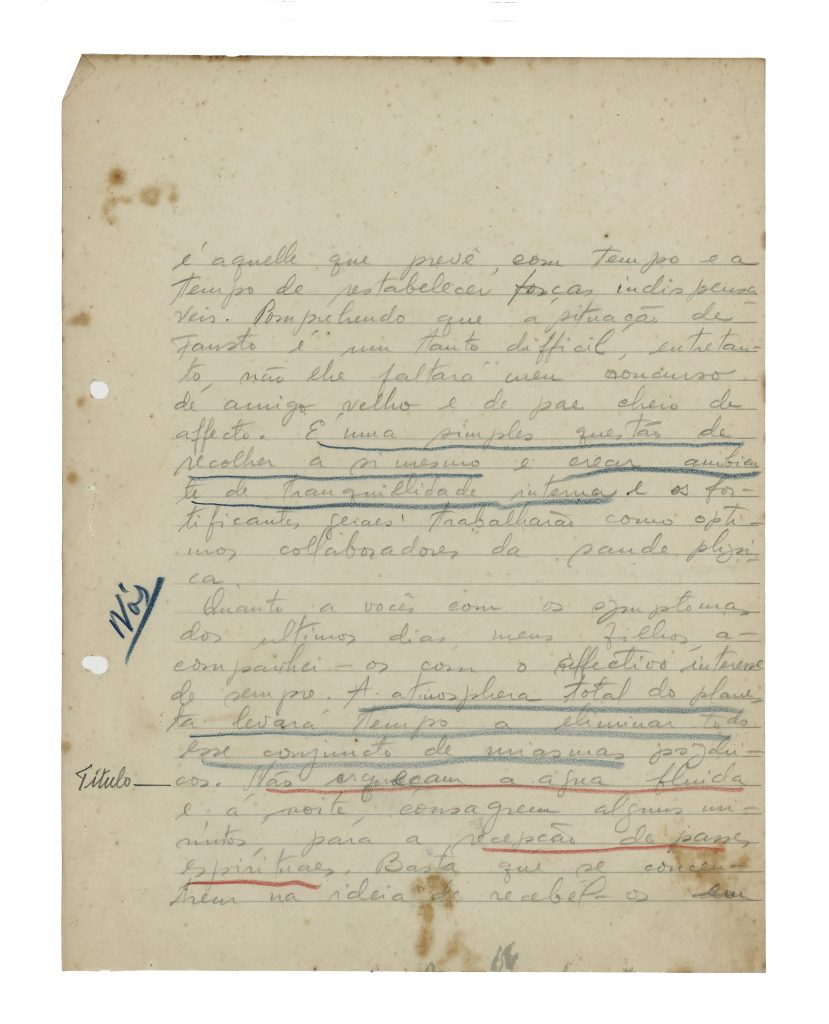 é aquelle que prevê, com tempo e a
tempo de restabelecer forças indispensa
veis. Comprehendo que a situação de
Fausto é um tanto difficil, entretan-
to, não lhe faltará meu concurso
de amigo velho e de pae cheio de
affecto. É uma simples questão de
recolher a si mesmo e crear ambien
te de tranquillidade interna e os for-
tificantes geraes trabalharão como opti-
mos collaboradores da saude physi-
ca.
Nós
Quanto a vocês com os symptomas
dos ultimos dias, meus filhos, a-
companhei-os com o affectivo interesse
de sempre. A atmosphera total do plane-
ta levará tempo a eliminar todo
esse conjuncto de miasmas psychi-
Titulo — cos. Não esqueçam a agua fluida
e á noite, consagrem alguns mi-
nutos, para a recepção de passes
espirituaes. Basta que se concen-
trem na ideia de recebel-os em